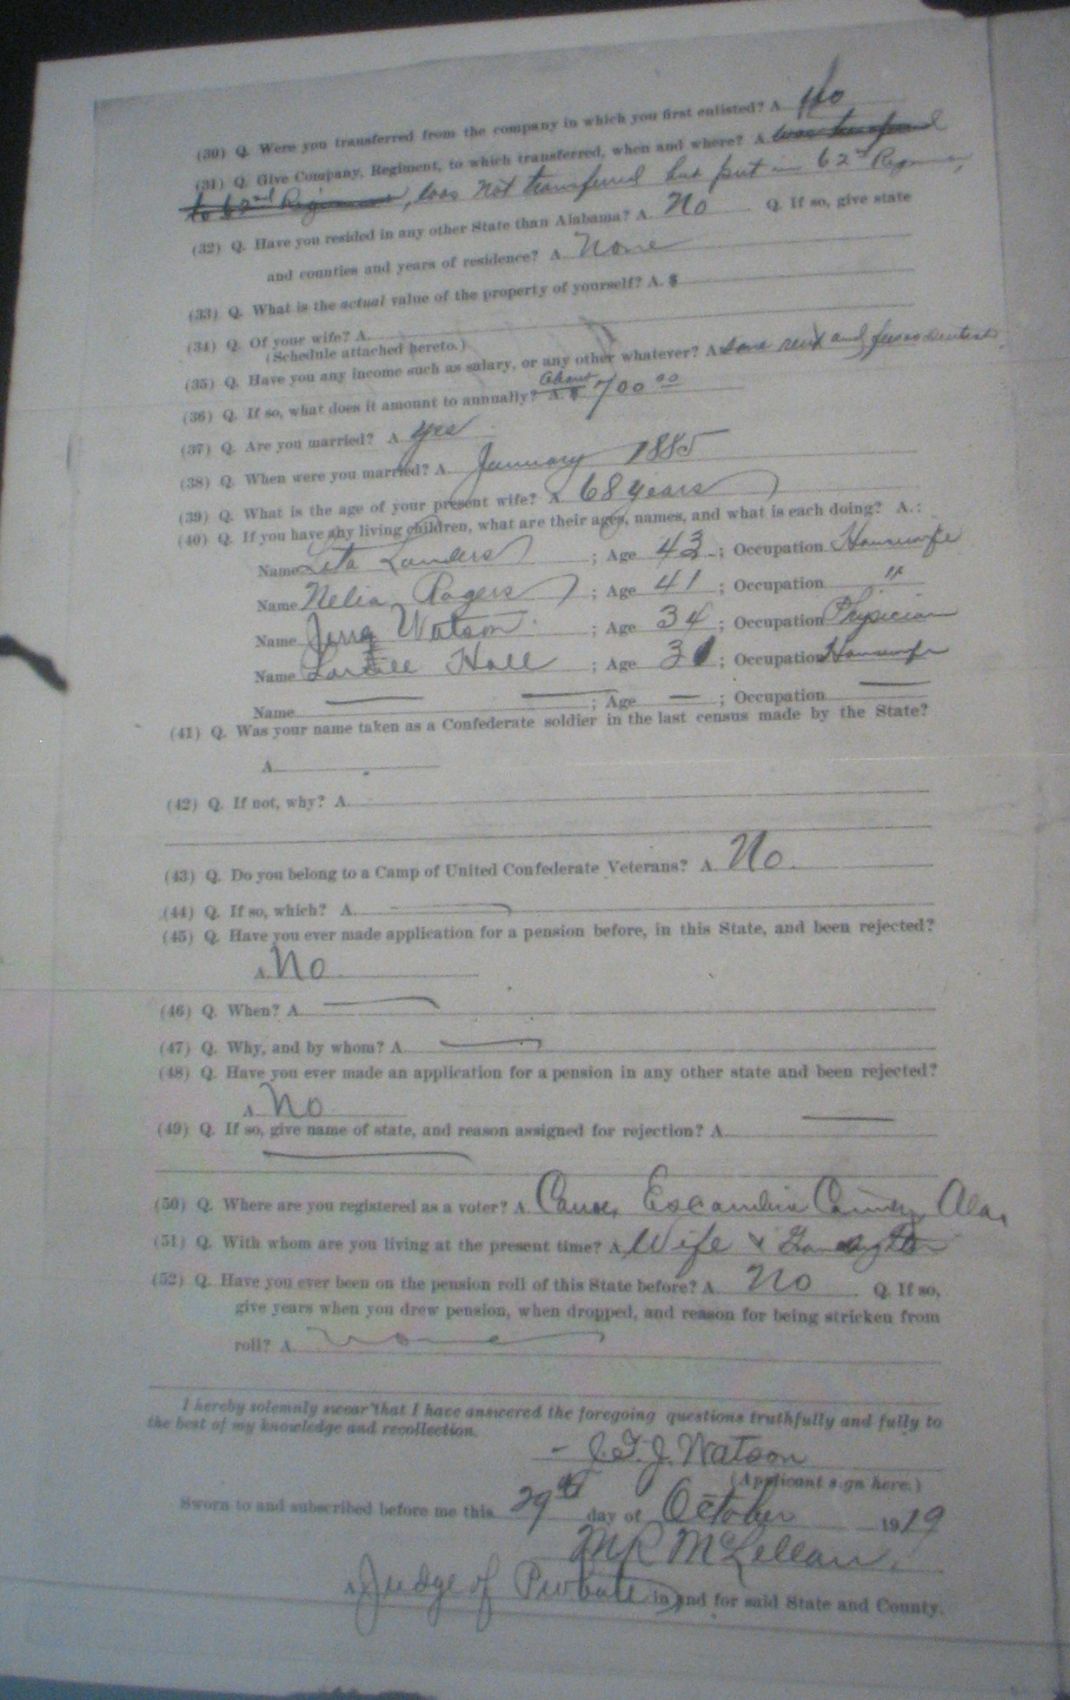 (30) Q. Were you transferred from the company in which you first enlisted? A. No
(31) Q. Give Company, Regiment, to which transferred, when and where? A. was transferred
to 62nd Regiment, was not transferred but put in 62nd Regiment,
(32) Q. Have you resided in any other State than Alabama? A. No Q. If so, give state
and counties and years of residence? A. None
(33) Q. What is the actual value of the property of yourself? A. $
(34) Q. Of your wife? A.
(Schedule attached hereto.)
(35) Q. Have you any income such as salary, or any other whatever? A. rent and
(36) Q. If so, what does it amount to annually? A. $ About 700 00
(37) Q. Are you married? A. yes
(38) Q. When were you married? A. January 1885
(39) Q. What is the age of your present wife? A. 68 years
(40) Q. If you have any living children, what are their ages, names, and what is each doing? A.:
Name Landers ; Age 43 ; Occupation Housewife
Name Nelia Rogers ; Age 41 ; Occupation "
Name Watson ; Age 34 ; Occupation Physician
Name Hall ; Age ; Occupation Housewife
Name ; Age ; Occupation
(41) Q. Was your name taken as a Confederate soldier in the last census made by the State?
A.
(42) Q. If not, why? A.
(43) Q. Do you belong to a Camp of United Confederate Veterans? A. No.
(44) Q. If so, which? A.
(45) Q. Have you ever made application for a pension before, in this State, and been rejected?
A. No
(46) Q. When? A.
(47) Q. Why, and by whom? A.
(48) Q. Have you ever made an application for a pension in any other state and been rejected?
A. No
(49) Q. If so, give name of state, and reason assigned for rejection? A.
(50) Q. Where are you registered as a voter? A. Escambia County Ala,
(51) Q. With whom are you living at the present time? A. Wife &
(52) Q. Have you ever been on the pension roll of this State before? A. No Q. If so,
give years when you drew pension, when dropped, and reason for being stricken from
roll? A. none
I hereby solemnly swear that I have answered the foregoing questions truthfully and fully to
the best of my knowledge and recollection.
J. T. J. Watson
(Applicant sign here.)
Sworn to and subscribed before me this 29th day of October 1919
M R McLellan,
A Judge of Probate in and for said State and County.